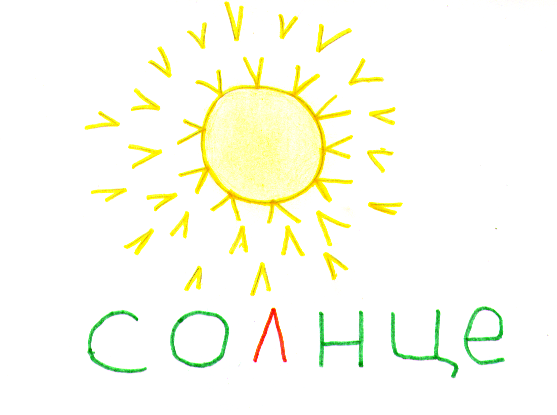 солнце